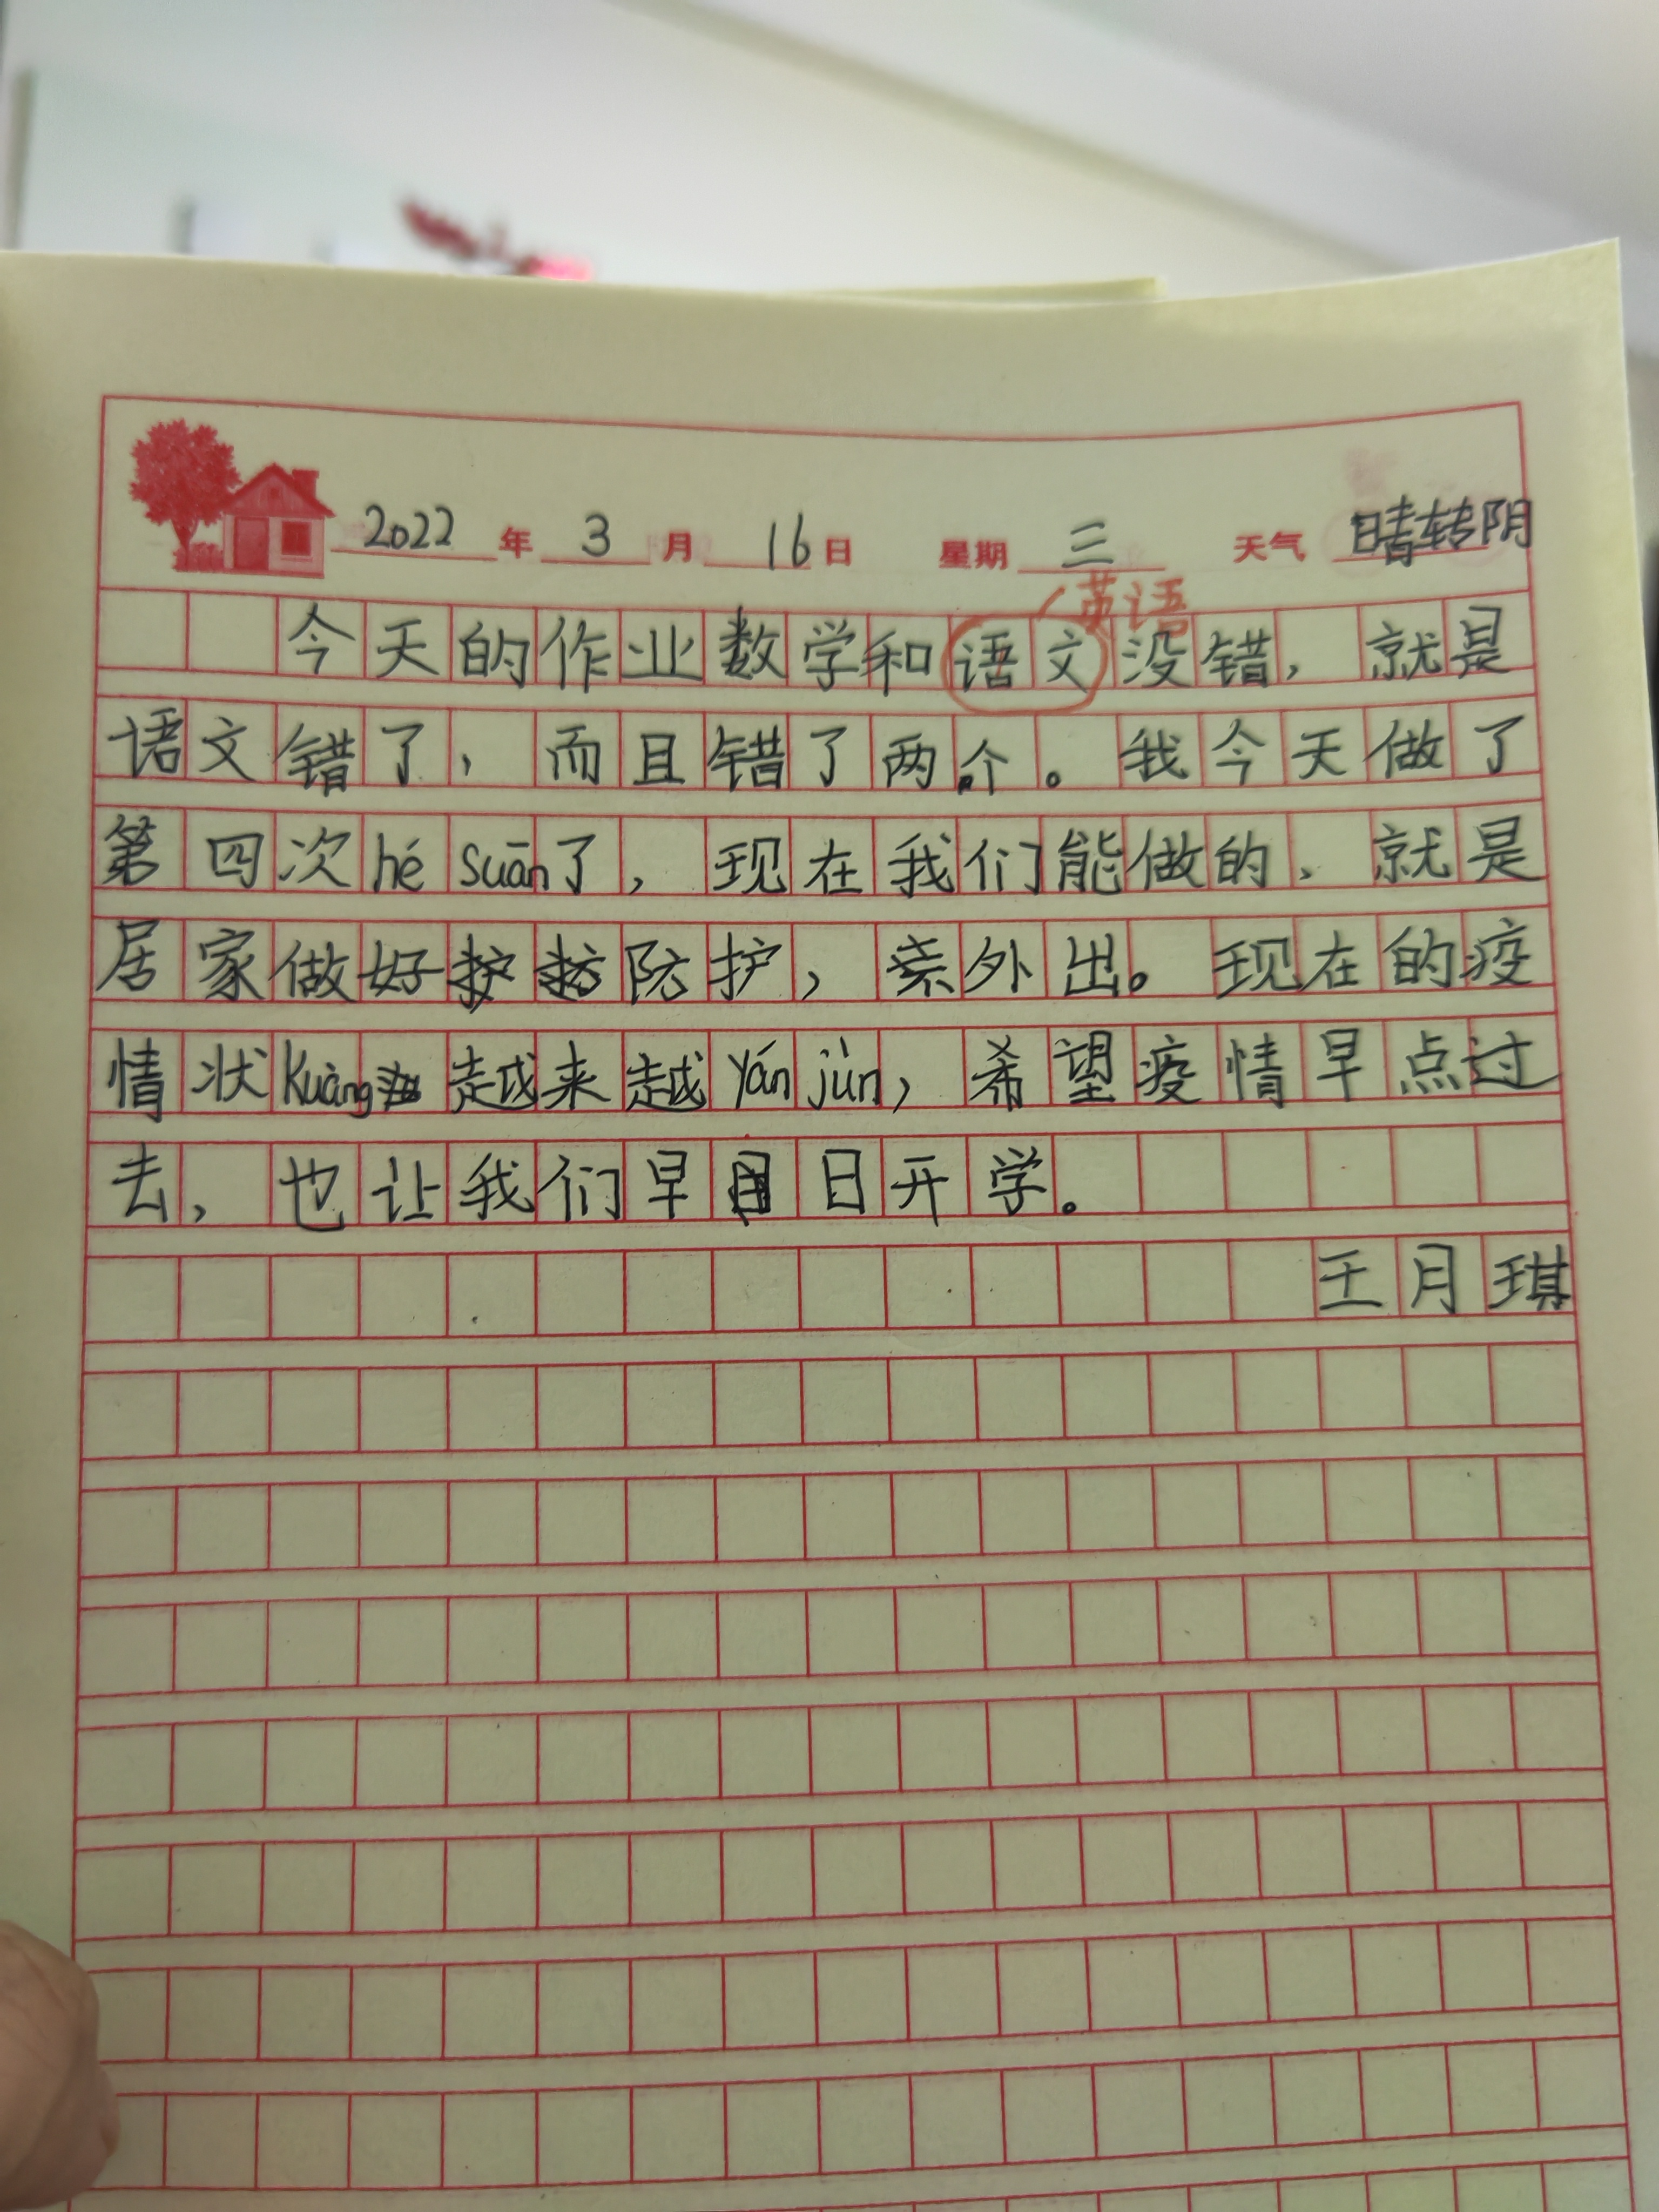 2022年3月16日 星期三 天气 晴转阴
英语
今天的作业数学和语文没错，就是
语文错了，而且错了两个。我今天做了
第四次hé suān了，现在我们能做的，就是
居家做好防护，亲外出。现在的疫
情状kuàng越来越yán jùn，希望疫情早点过
去，也让我们早日开学。
王月琪